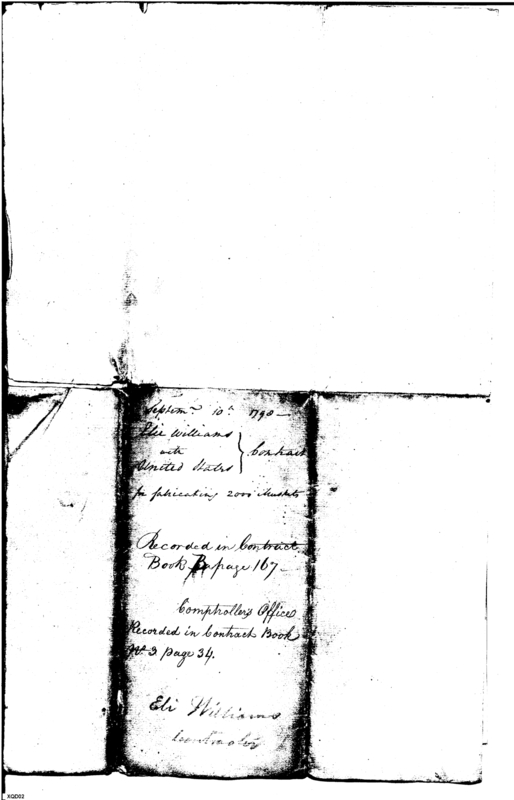 Septem.r 10.th 1798 —
Elie Williams
with } Contract
United States
for fabricating 2000 Muskets
Recorded in Contract
Book B page 167 —
Comptroller's Office
Recorded in Contract Book
N.o 3 page 34.
Eli Williams
XGD02